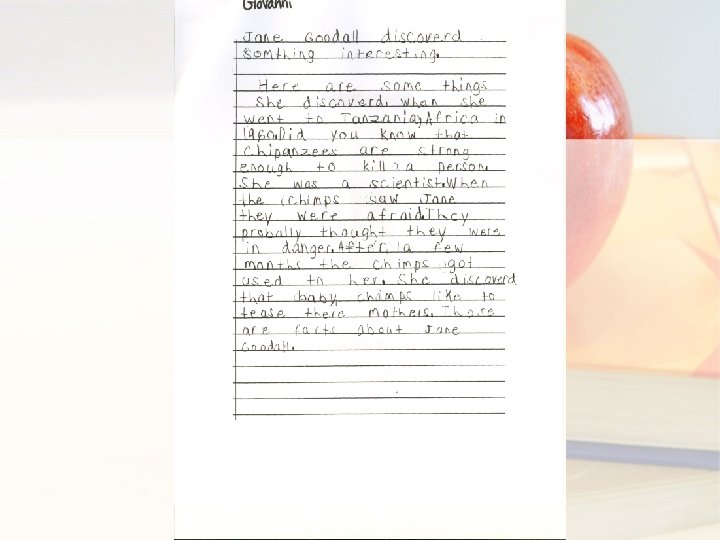 Giovanni
Jane Goodall discoverd
Somthing interesting.
Here are some things
She discoverd. when she
went to Tanzania, Africa in
1960. Did you know that
Chipanzees are strong
enough to kill a person.
She was a scientist. When
the chimps saw Jane
they were afraid. They
probally thought they were
in danger. After a few
months the chimps got
used to her. She discoverd
that baby chimps like to
tease there mothers. Thoes
are facts about Jane
Goodall.